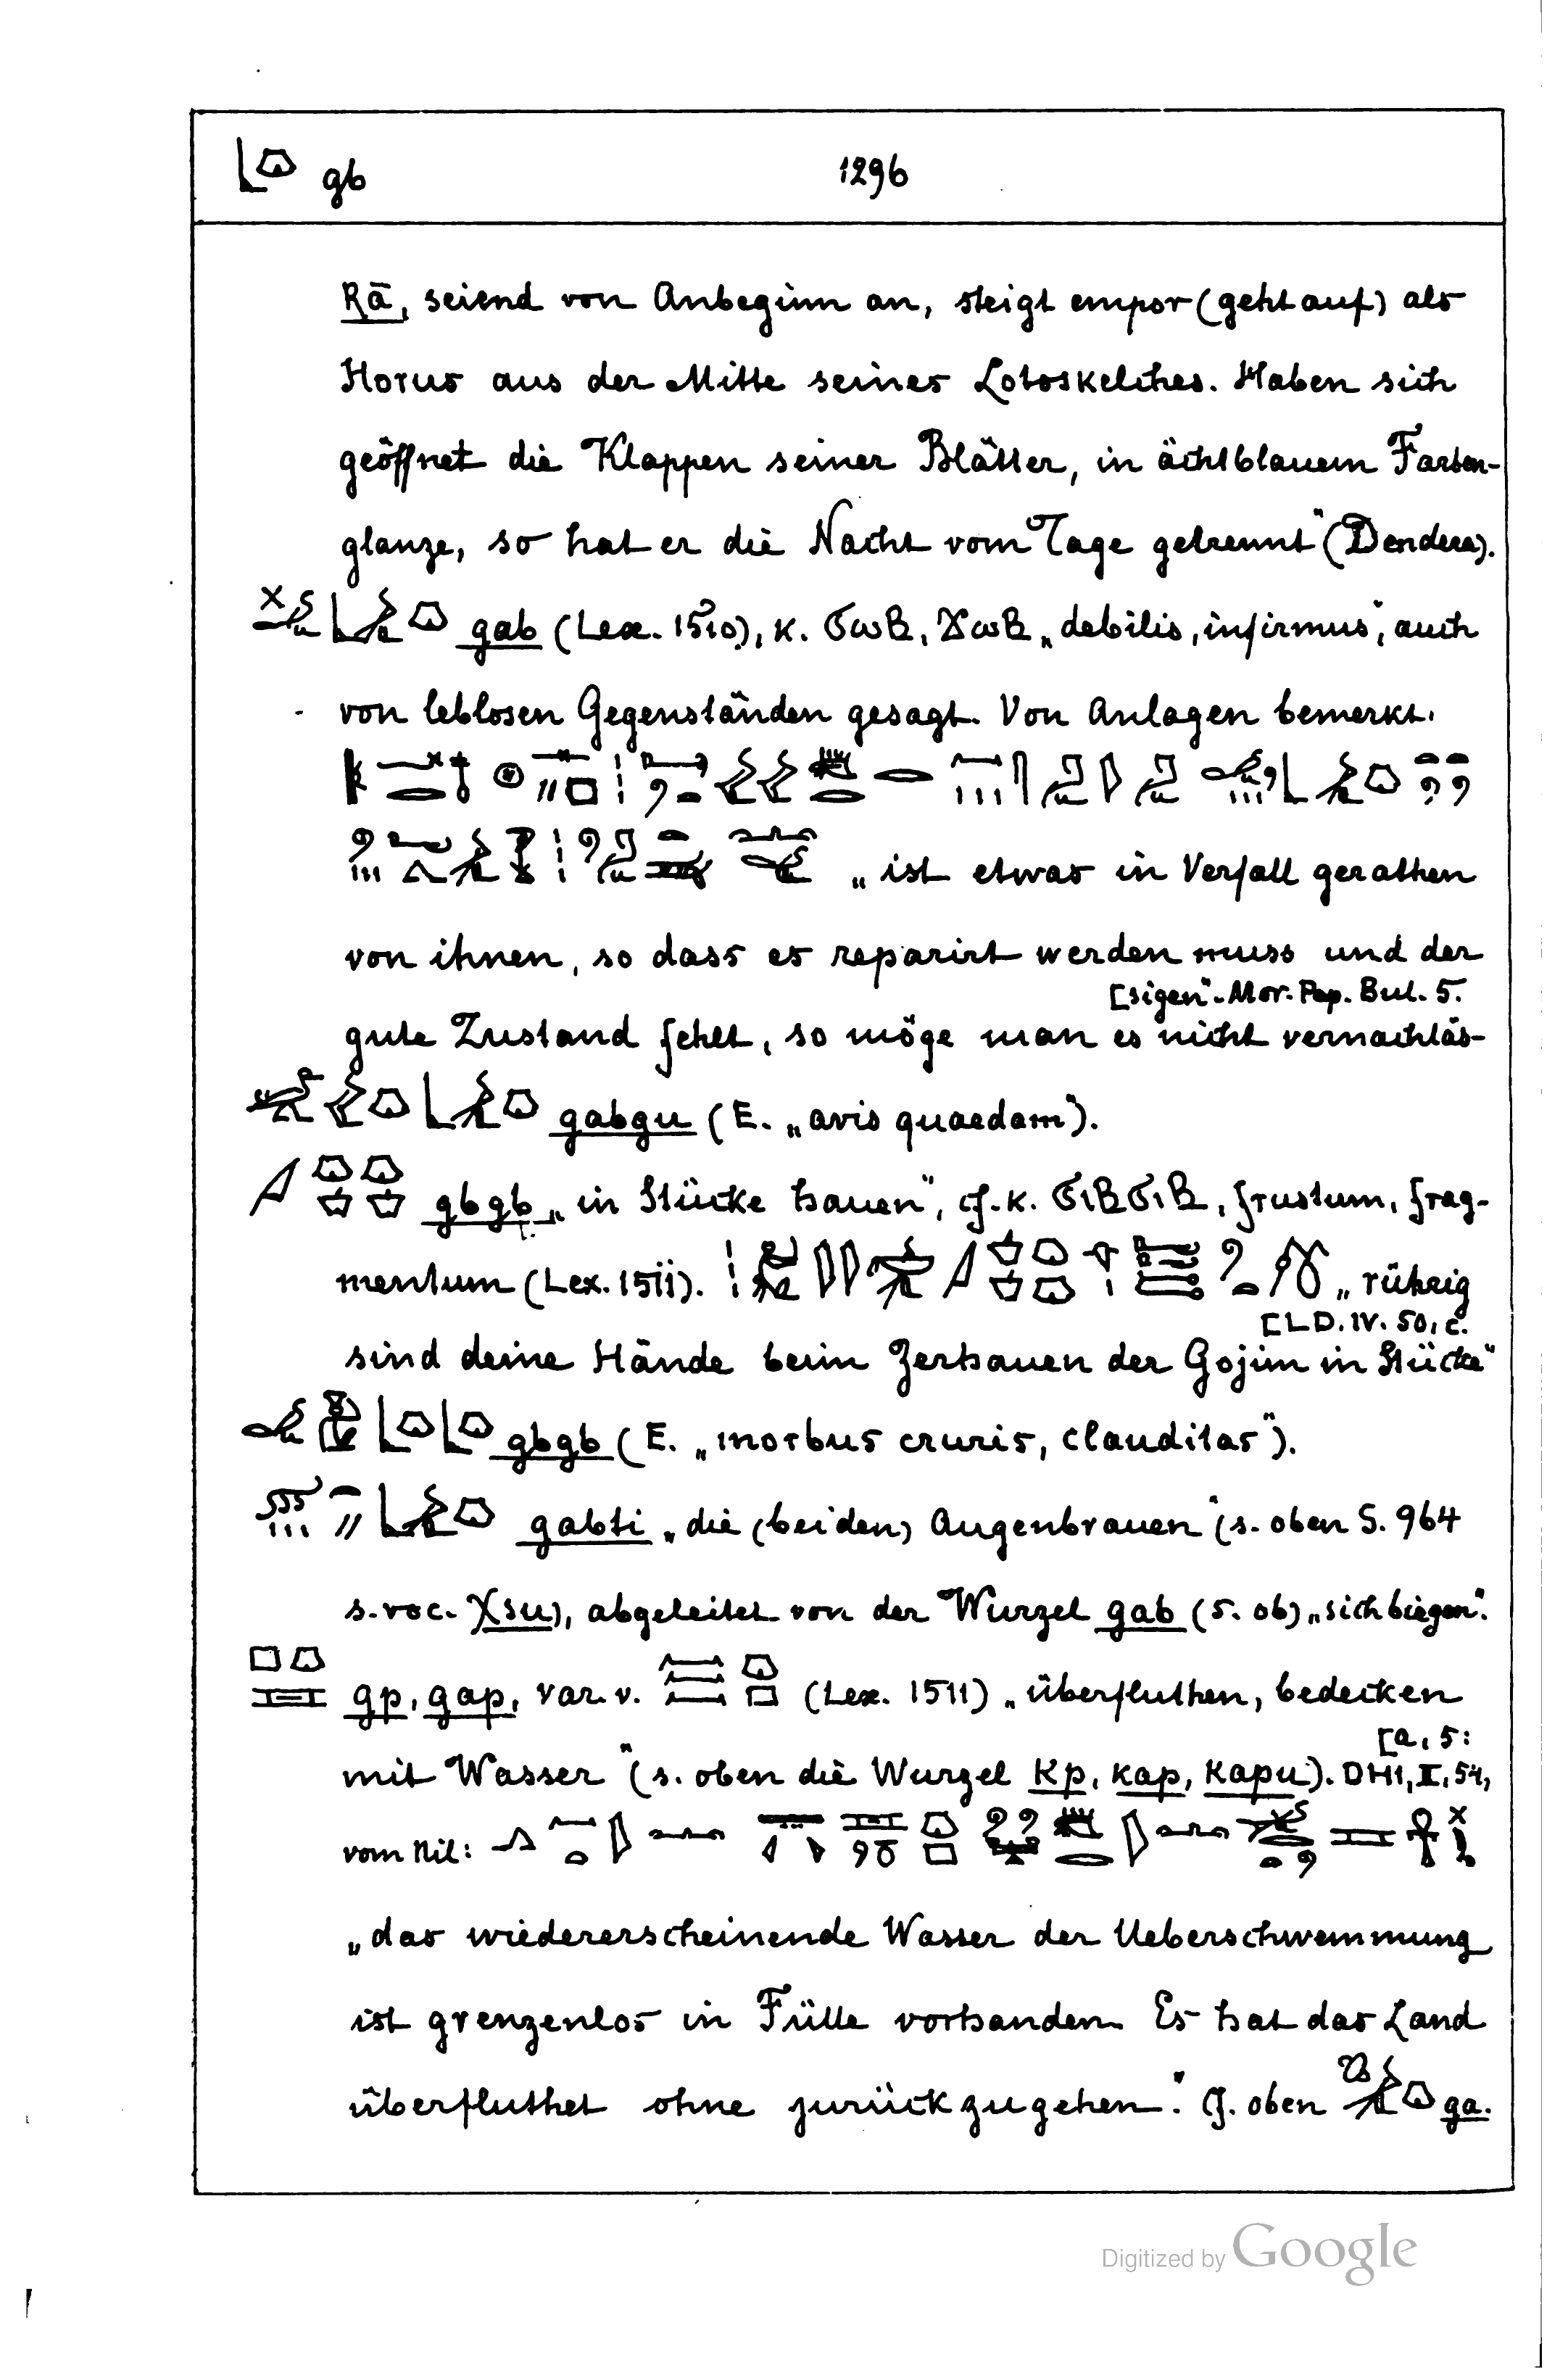 gb 1296
Rā, seiend von Anbeginn an, steigt empor (geht auf) als
Horus aus der Mitte seines Lotoskelches. Haben sich
geöffnet die Klappen seiner Blätter, in ächtblauem Farben-
glanze, so hat er die Nacht vom Tage getrennt" (Dendera).
gab (Lex. 1510), K. ϬⲱⲂ, ϪⲱⲂ „debilis, infirmus", auch
von leblosen Gegenständen gesagt. Von Anlagen bemerkt.
„ist etwas in Verfall gerathen
von ihnen, so dass es reparirt werden muss und der
[sigen". Mar. Pap. Bul. 5.
gute Zustand fehlt, so möge man es nicht vernachläs-
gabgu (E. „avis quaedam").
gbgb „in Stücke hauen", cf. K. ϬⲓⲂϬⲓⲂ, frustum, frag-
mentum (Lex. 1511). „rührig
[LD. IV. 50, c.
sind deine Hände beim Zerhauen der Gojim in Stücke"
gbgb (E. „morbus cruris, clauditas").
gabti „die (beiden) Augenbrauen" (s. oben S. 964
s. voc. χsu), abgeleitet von der Wurzel gab (s. ob) „sich biegen".
gp, gap, var. v. (Lex. 1511) „überfluthen, bedecken
[a, 5:
mit Wasser" (s. oben die Wurzel Kp, Kap, Kapu). DHI, II, 54,
vom Nil:
„das wiedererscheinende Wasser der Ueberschwemmung
ist grenzenlos in Fülle vorhanden. Es hat das Land
überfluthet ohne zurückzugehen". Cf. oben ga.
Digitized by Google